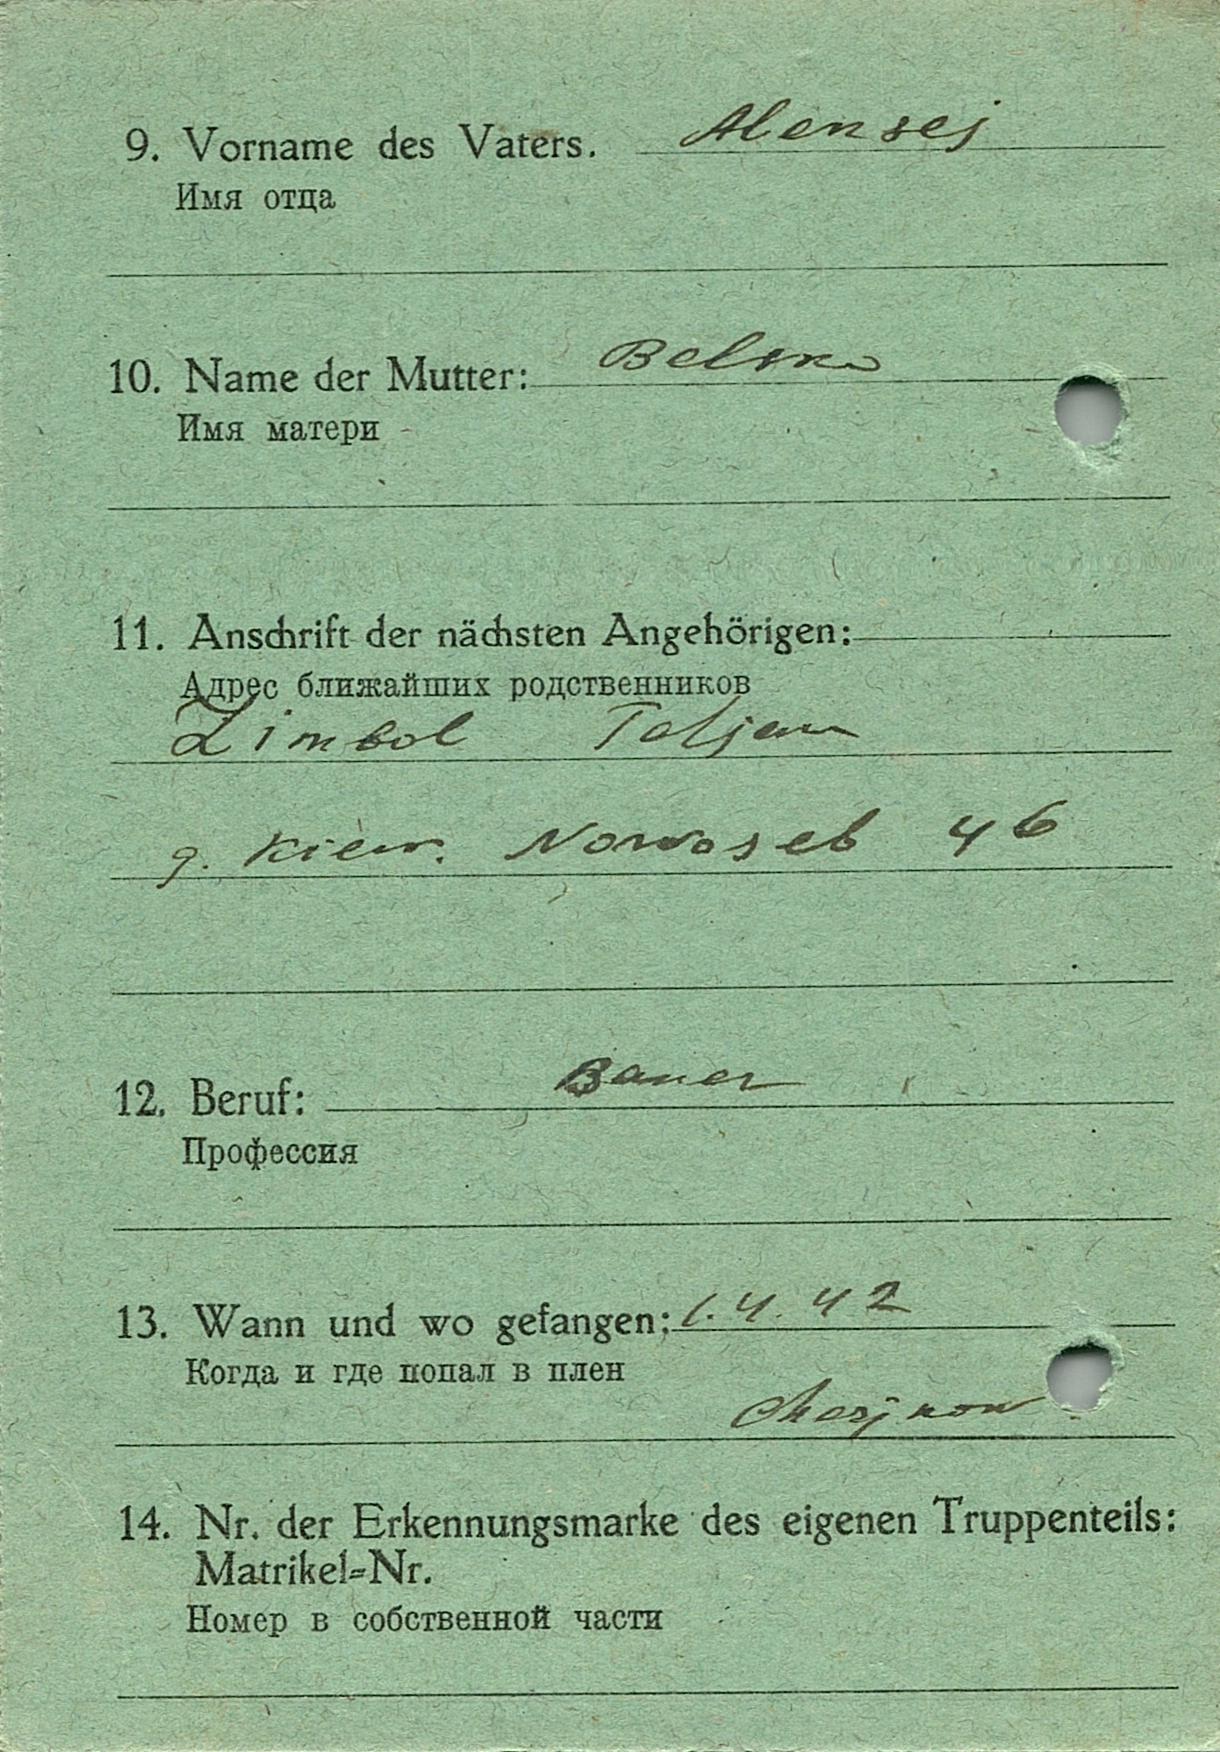 9. Vorname des Vaters. Alensej
Имя отца
10. Name der Mutter: Belska
Имя матери
11. Anschrift der nächsten Angehörigen:
Адрес ближайших родственников
Zimbol Tatjan
g. Kiew. Nowoseb 46
12. Beruf: Bauer
Профессия
13. Wann und wo gefangen: 1.4.42
Когда и где попал в плен
14. Nr. der Erkennungsmarke des eigenen Truppenteils:
Matrikel-Nr.
Номер в собственной части